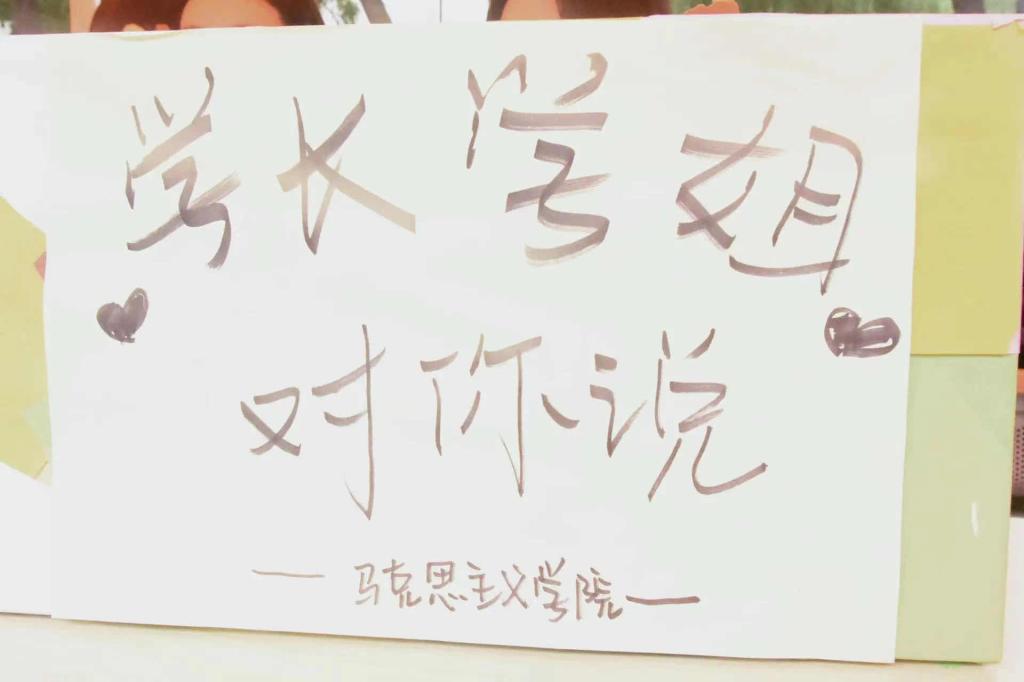 学长学姐
对你说
——马克思主义学院——